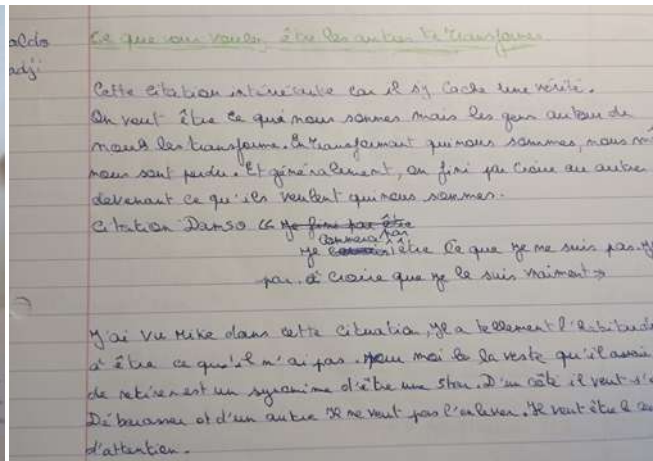 aldo
adji
Ce que vous voulez être les autres te transforme
Cette citation car il s'y cache une vérité.
On veut être ce qui nous sommes mais les gens autour de
nous les transforme. En transformant qui nous sommes, nous
nous sont perdu. Et généralement, on fini par croire au autre
devenant ce qu'ils veulent qui nous sommes.
Citation Damso " Je fini par être
Je commence par être ce que je ne suis pas.
par à croire que je le suis vraiment "
J'ai vu Mike dans cette situation, Il a tellement l'habitude
d'être ce qu'il n'ai pas. Pour moi la veste qu'il avait
de retirer est un d'être une star. D'un côté il veut s'
Débarasser et d'un autre Il ne veut pas l'enlever. Il veut être le
d'attention.